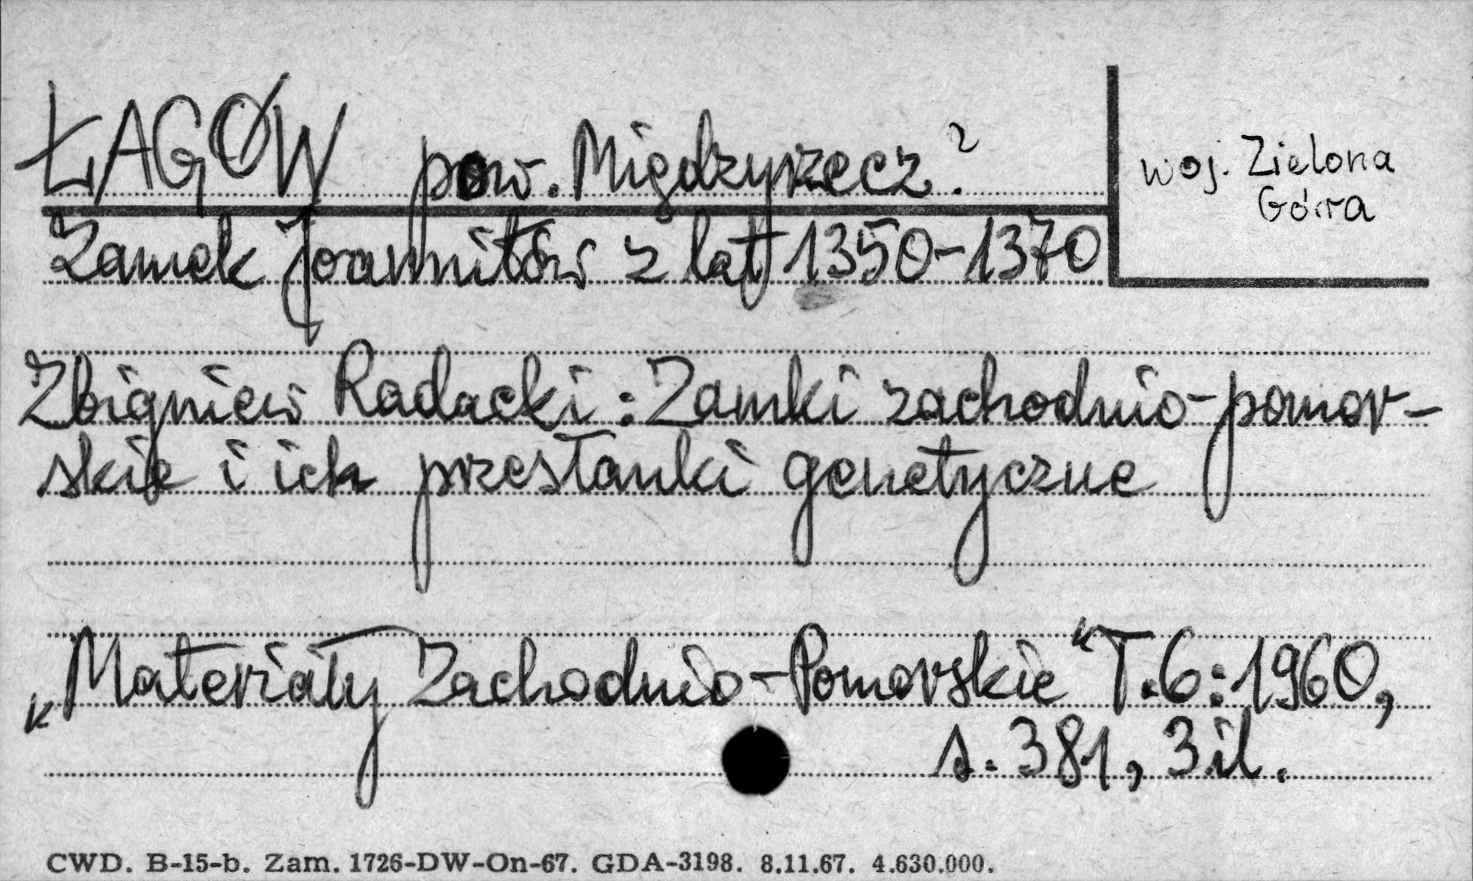 ŁAGÓW pow. Międzyrzecz.?
woj. Zielona
Góra
Zamek Joannitów z lat 1350-1370
Zbigniew Radacki: Zamki zachodnio-pomor-
skie i ich przesłanki genetyczne
„Materiały Zachodnio-Pomorskie" T.6:1960,
s. 381, 3 il.
CWD. B-15-b. Zam. 1726-DW-On-67. GDA-3198. 8.11.67. 4.630.000.